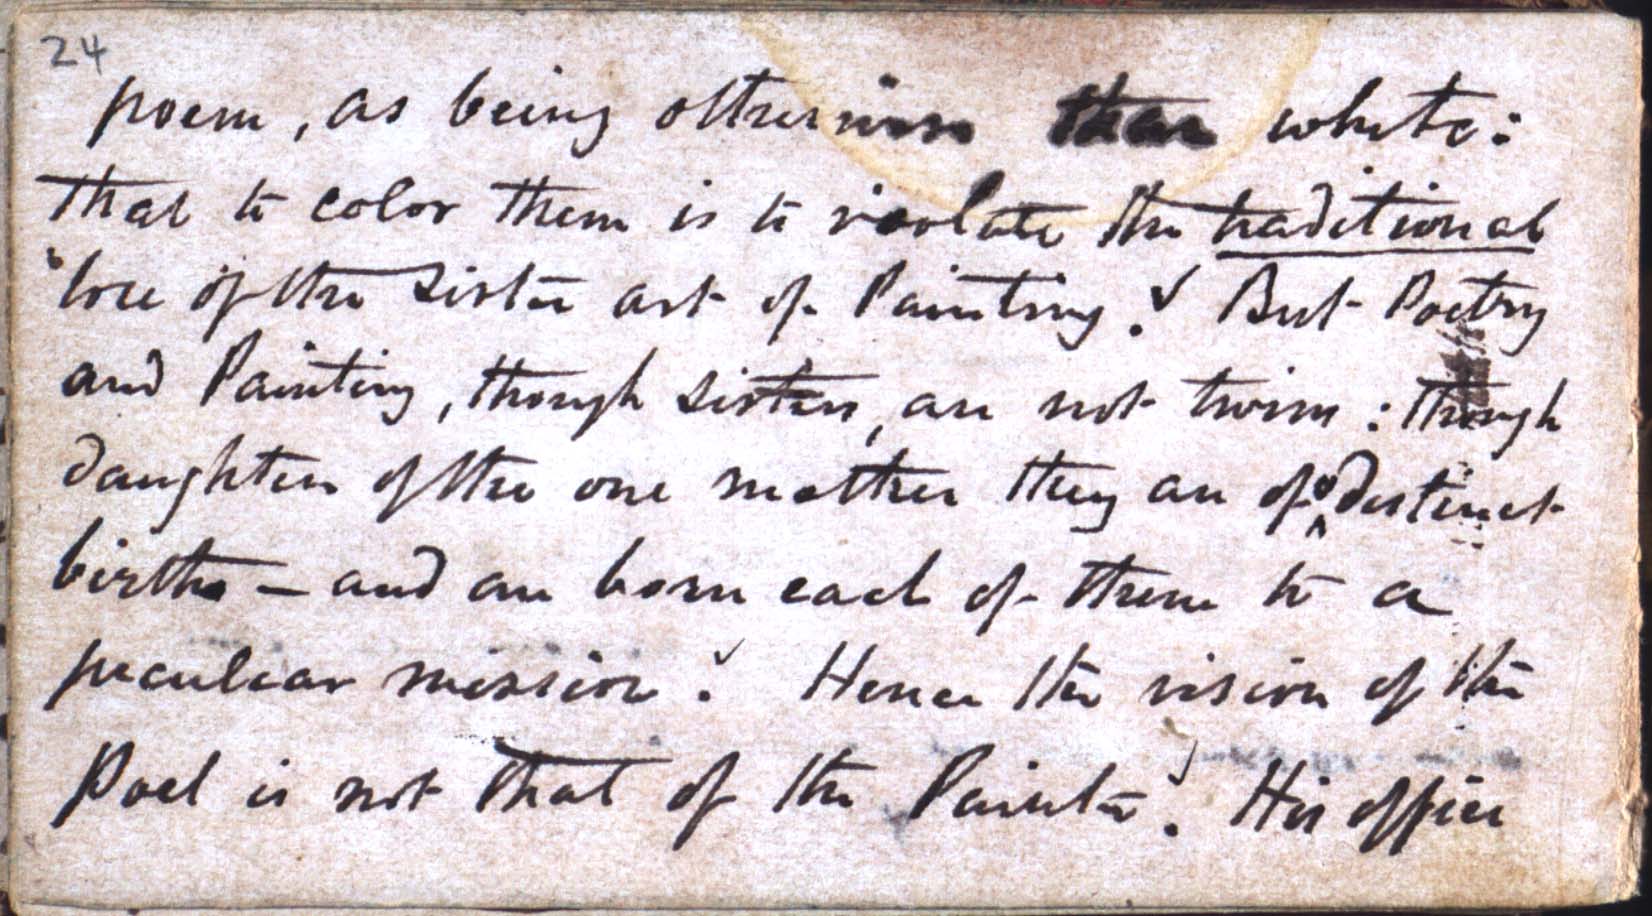 24
poem, as being otherwise than white:
that to color them is to violate the traditional
lore of the sister art of Painting. But Poetry
and Painting, though sisters, are not twins: though
daughters of the one mother they are of distinct
births — and are born each of them to a
peculiar mission. Hence the vision of the
Poet is not that of the Painter. His office